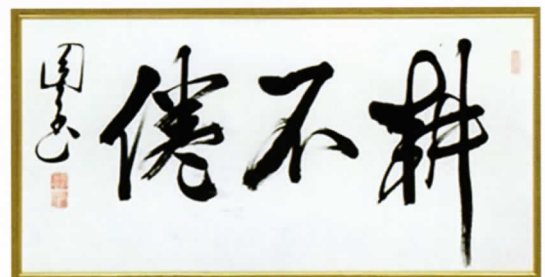 耕不倦